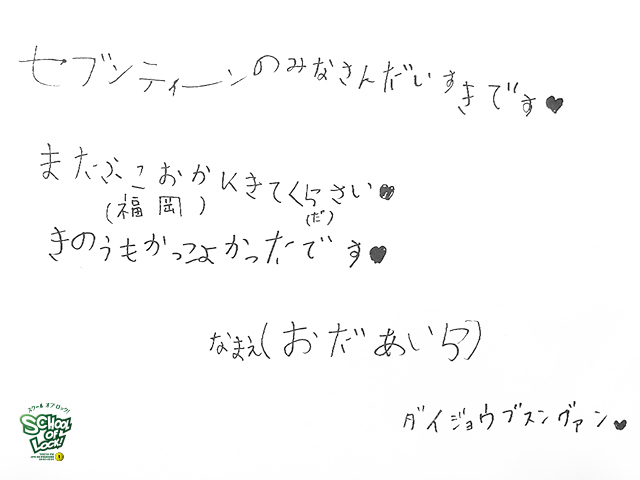 セブンティーンのみなさんだいすきです♥
またふこおかにきてくらさい♥
(福岡)
(だ)
きのうもかっこよかったです♥
なまえ(おだあいら)
ダイジョウブスングァン♥
スクール オブ ロック!
SCHOOL OF LOCK!